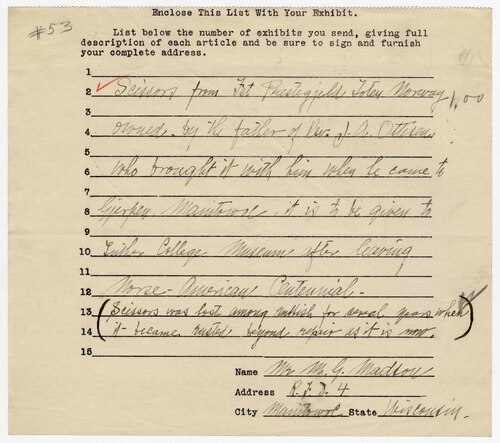 #53
Enclose This List With Your Exhibit.
List below the number of exhibits you send, giving full
description of each article and be sure to sign and furnish
your complete address.
1
2 Scissors from Prestegjeld Toten Norway 1.00
3
4 owned by the father of Rev. J. A. Ottesen
5
6 who brought it with him when he came to
7
8 Gjerpen Manitowoc it is to be given to
9
10 Luther College Museum after leaving
11
12 Norse-American Centennial.
13 (Scissors was lost among rubbish for several years when
14 it became rusted beyond repair as it is now.)
15
Name Mr M. G. Madson
Address R.F.D. 4
City Manitowoc State Wisconsin.